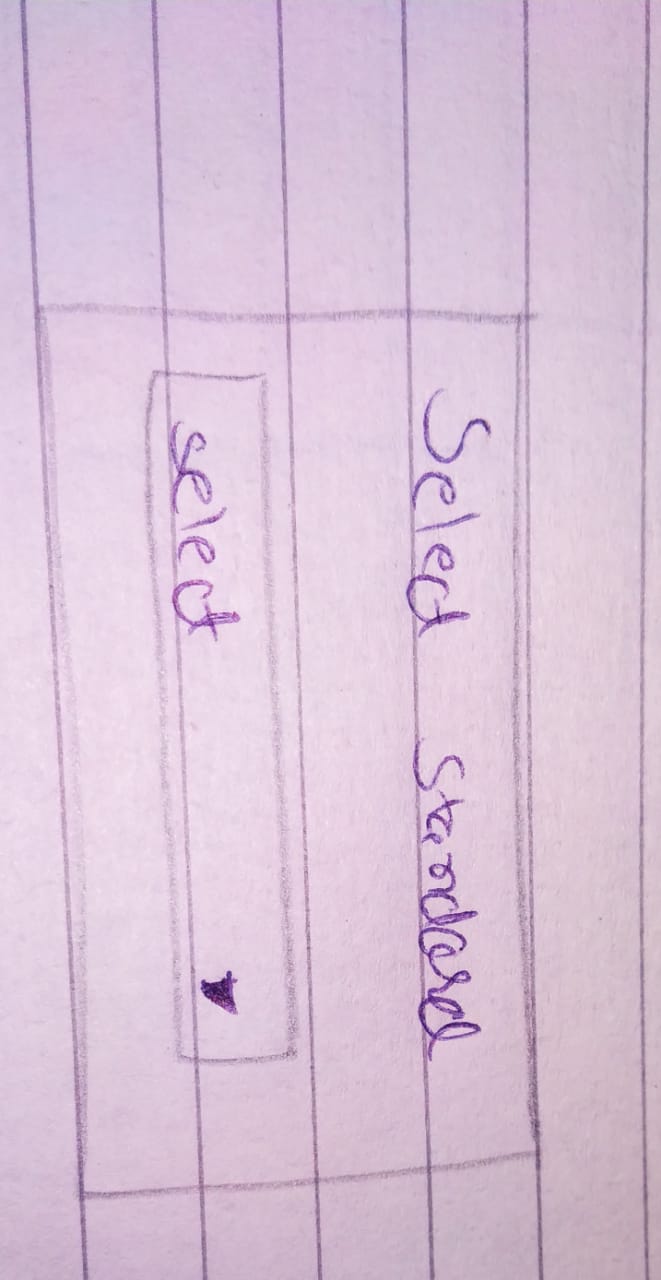 Select Standard
select